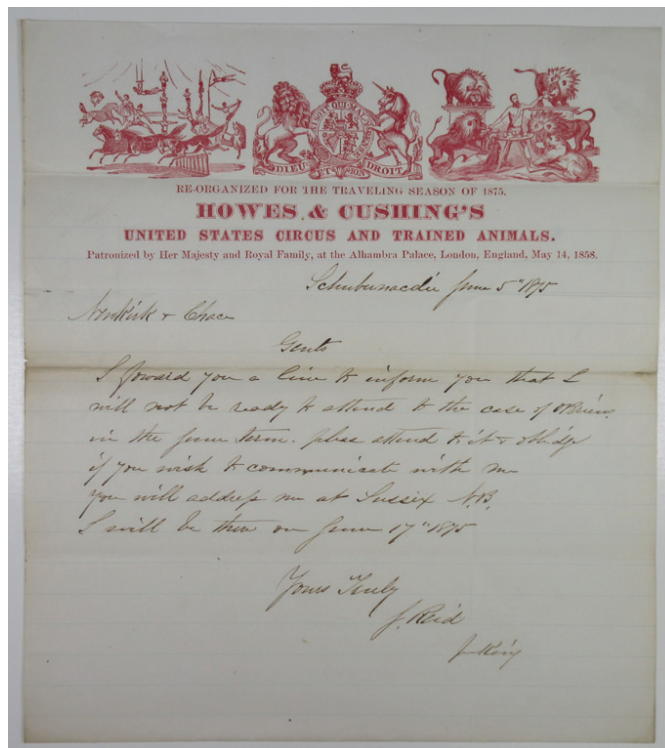 DIEU ET MON DROIT
RE-ORGANIZED FOR THE TRAVELING SEASON OF 1875.
HOWES & CUSHING'S
UNITED STATES CIRCUS AND TRAINED ANIMALS.
Patronized by Her Majesty and Royal Family, at the Alhambra Palace, London, England, May 14, 1858.
Schubunacdie June 5" 1875
& Chace
Gents
I foward you a line to inform you that I
will not be ready to attend to the case of OBriens
in the June term. pleas attend to it & oblidge
if you wish to communicate with me
you will address me at Sussex N.B.
I will be there on June 17" 1875
Yours Truly
J. Reid